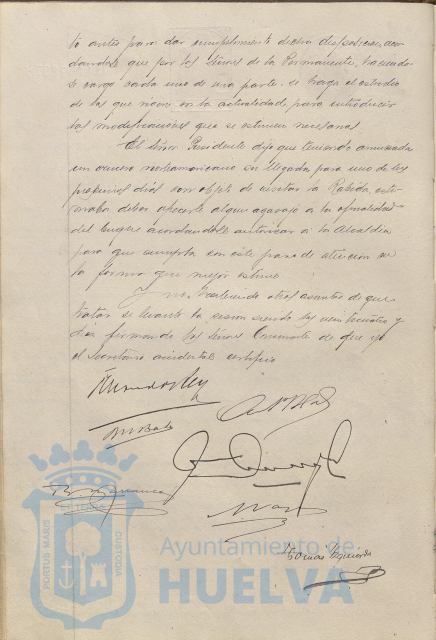 to antes para dar cumplimiento dicha disposicion, acor
dandose que por los señores de la Permanente, haciendo
se cargo cada uno de una parte, se haga el estudio
de las que rigen en la actualidad, para introducir
las modificaciones que se estimen necesarias.
El señor Presidente dijo que teniendo anunciada
un crucero norteamericano su llegada para uno de los
proximos dias con objeto de visitar la Rabida, esti-
maba deber ofrecerle algun agasajo a la oficialidad
del buque acordandose autorizar a la Alcaldia
para que cumpla con este paso de atencion en
la forma que mejor estime.
Y no habiendo otros asuntos de que
tratar se levantó la sesion siendo las veintiuna y
diez firmando los señores Concurrentes de que yo
el Secretario accidental certifico
Tomás Izquierdo
PORTUS MARIS
ET TERRAE
CUSTODIA
Ayuntamiento de
HUELVA